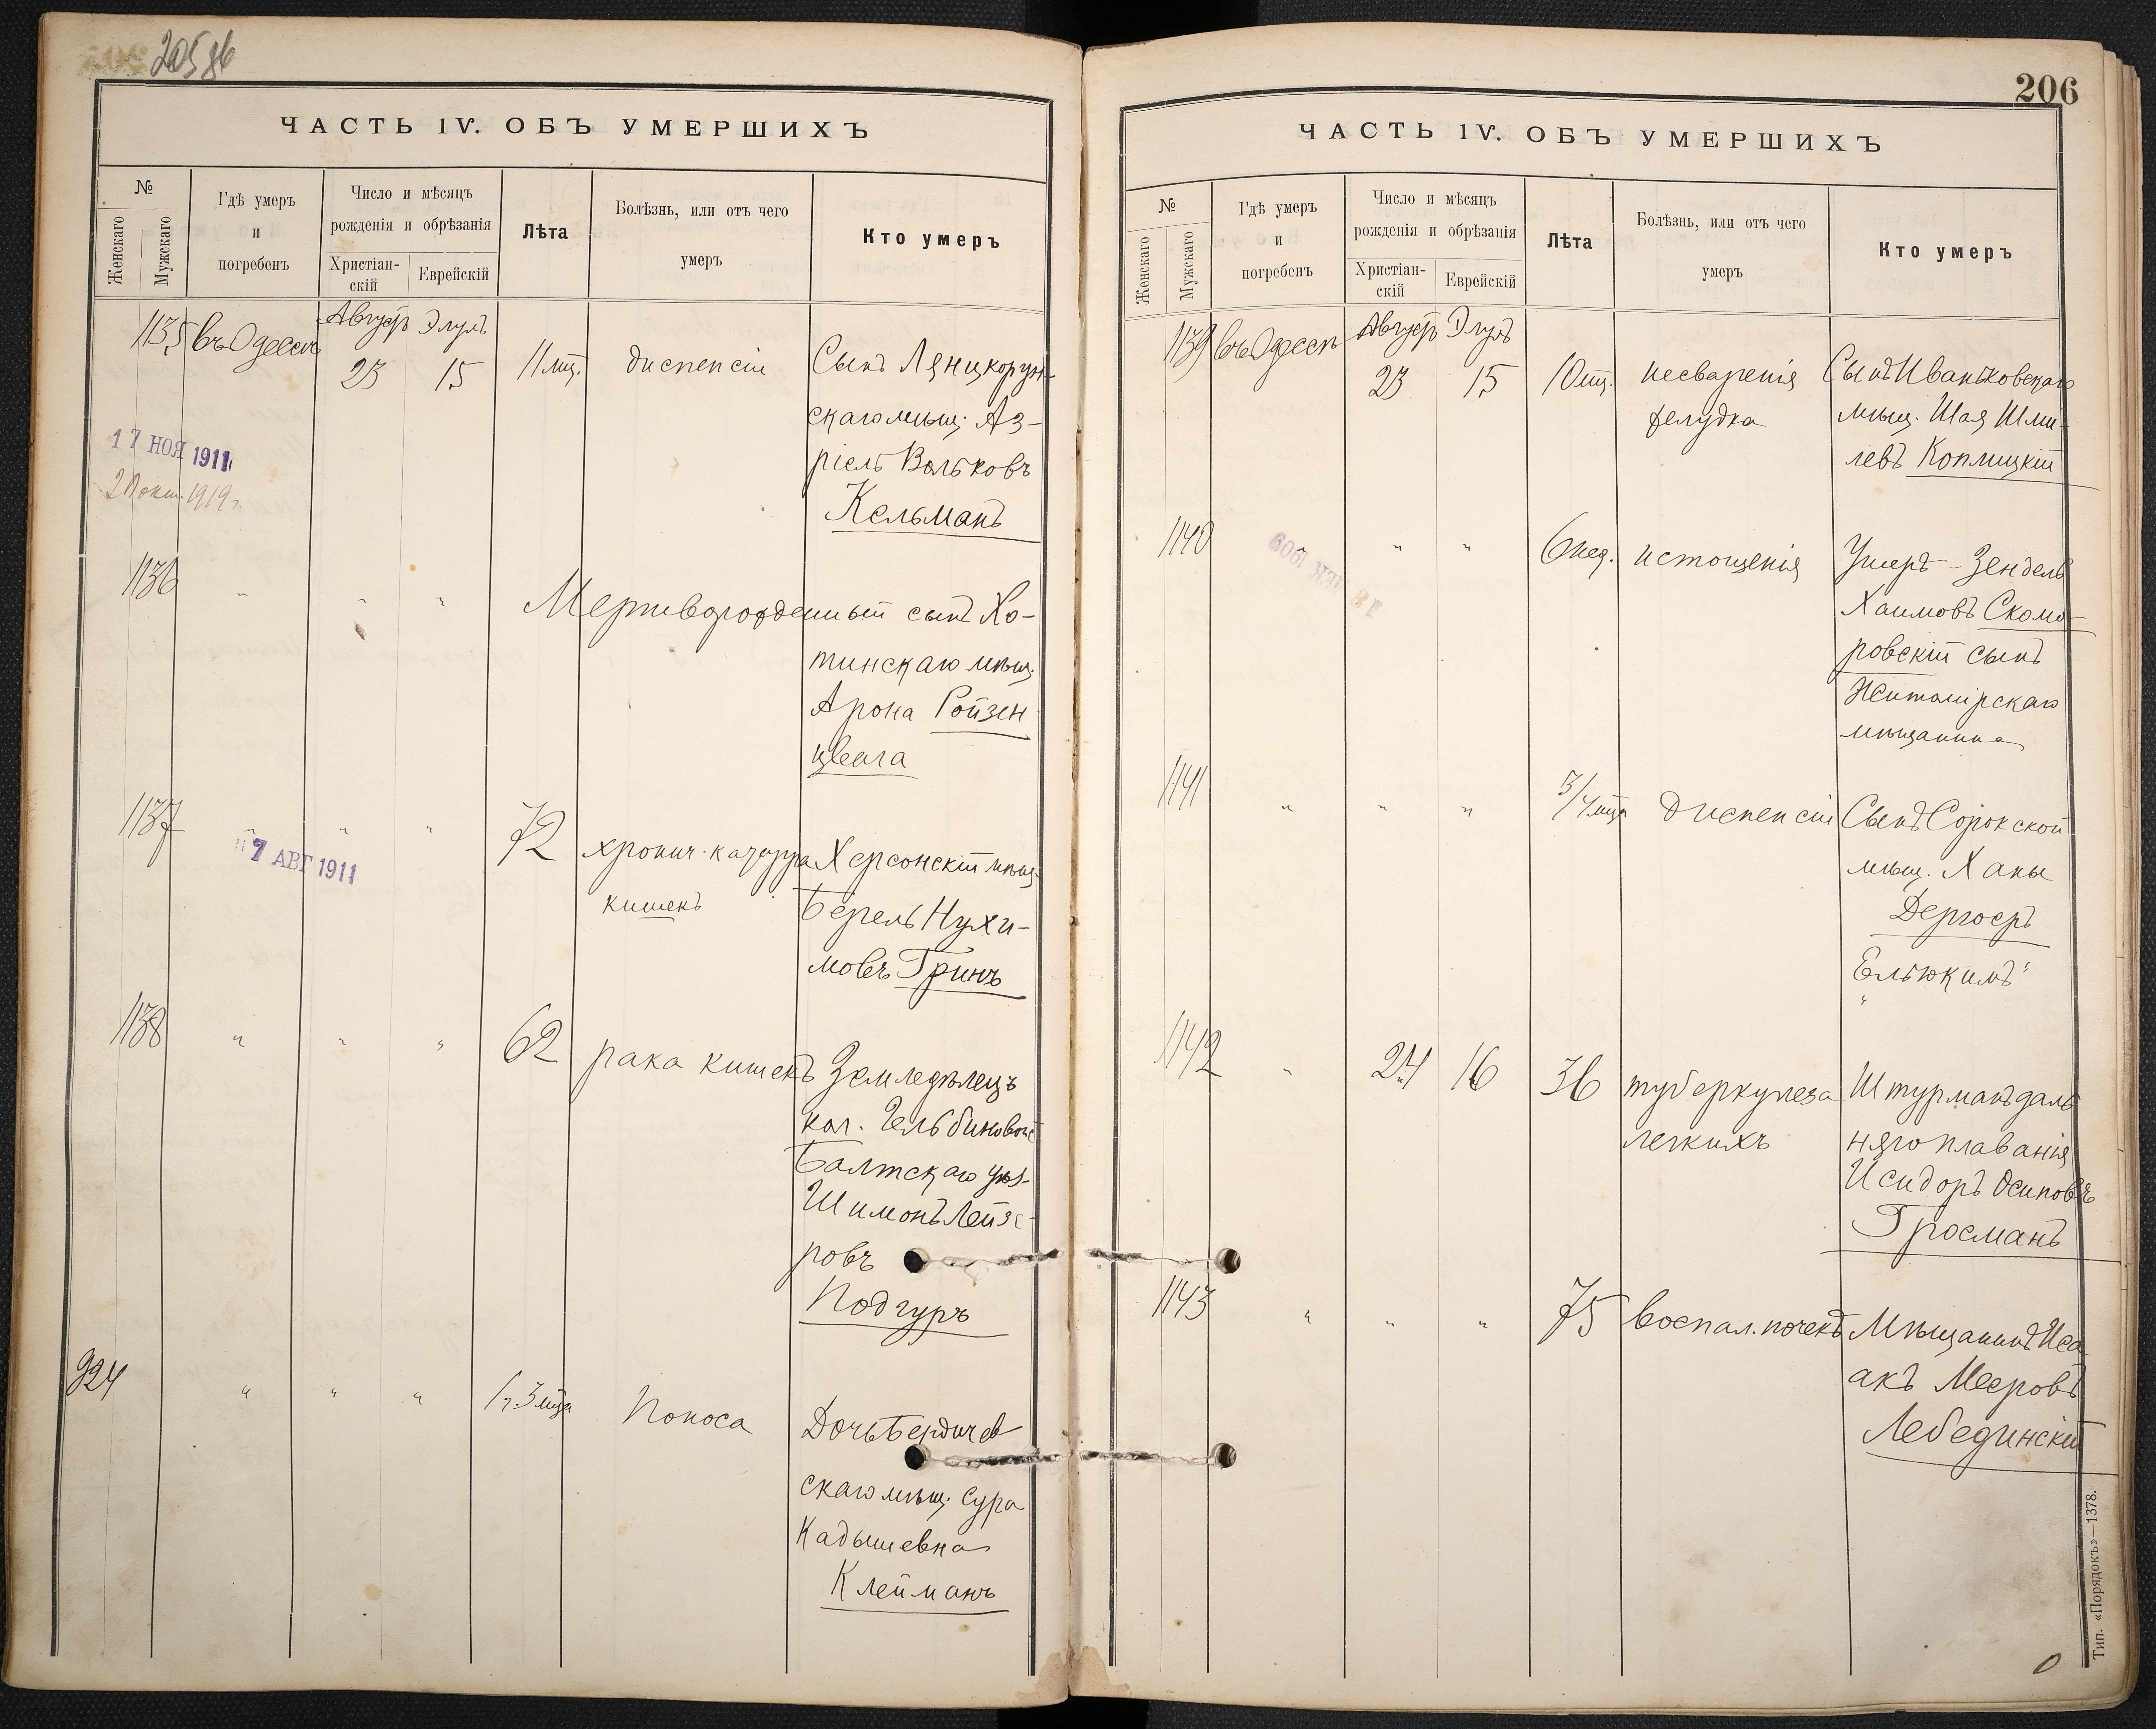 205 об
ЧАСТЬ IV. ОБЪ УМЕРШИХЪ
№
Женскаго
Мужскаго
Гдѣ умеръ
и
погребенъ
Число и мѣсяцъ
рожденія и обрѣзанія
Христіан-
скій
Еврейскій
Лѣта
Болѣзнь, или отъ чего
умеръ
Кто умеръ
1135 въ Одессѣ Августъ Элулъ
23 15 11 мц. диспепсіи Сынъ Лянцкорун-
скаго мѣщ. Аз-
ріель Вольковъ
Кельманъ
17 НОЯ 1911
1919 г.
1136 " " " Мертворожденный сынъ Хо-
тинскаго мѣщ.
Арона Ройзен
цвага
1137 " " " 72 хронич. катарра Херсонскій мѣщ.
кишекъ Берель Нухи-
мовъ Гринъ
7 АВГ 1911
1138 " " " 62 рака кишекъ Земледѣлецъ
кол. Гельбиновой
Балтскаго уѣз.
Шимонъ Лейзе-
ровъ
Подгуръ
924 " " " 1 г. 3 мца Поноса Дочь Бердичев
скаго мѣщ. Сура
Кадышевна
Клейманъ
206
ЧАСТЬ IV. ОБЪ УМЕРШИХЪ
№
Женскаго
Мужскаго
Гдѣ умеръ
и
погребенъ
Число и мѣсяцъ
рожденія и обрѣзанія
Христіан-
скій
Еврейскій
Лѣта
Болѣзнь, или отъ чего
умеръ
Кто умеръ
1139 въ Одессѣ Августъ Элулъ
23 15 10 мц. несваренія Сынъ Иваньковскаго
желудка мѣщ. Шая Шми-
левъ Копмицкій
1140 " " " 6 нед. истощенія Ушеръ-Зендель
Хаимовъ Скомо-
ровскій сынъ
Житомірскаго
мѣщанина
1909
1141 " " " 3/4 мца диспепсіи Сынъ Сорокской
мѣщ. Ханы
Дергоеръ
"Ельюкимъ"
1142 " 24 16 36 туберкулеза Штурманъ даль
легкихъ няго плаванія
Исидоръ Осиповъ
Гросманъ
1143 " " " 75 воспал. почекъ Мѣщанинъ Иса-
акъ Мееровъ
Лебединскій
Тип. «Порядокъ»—1378.